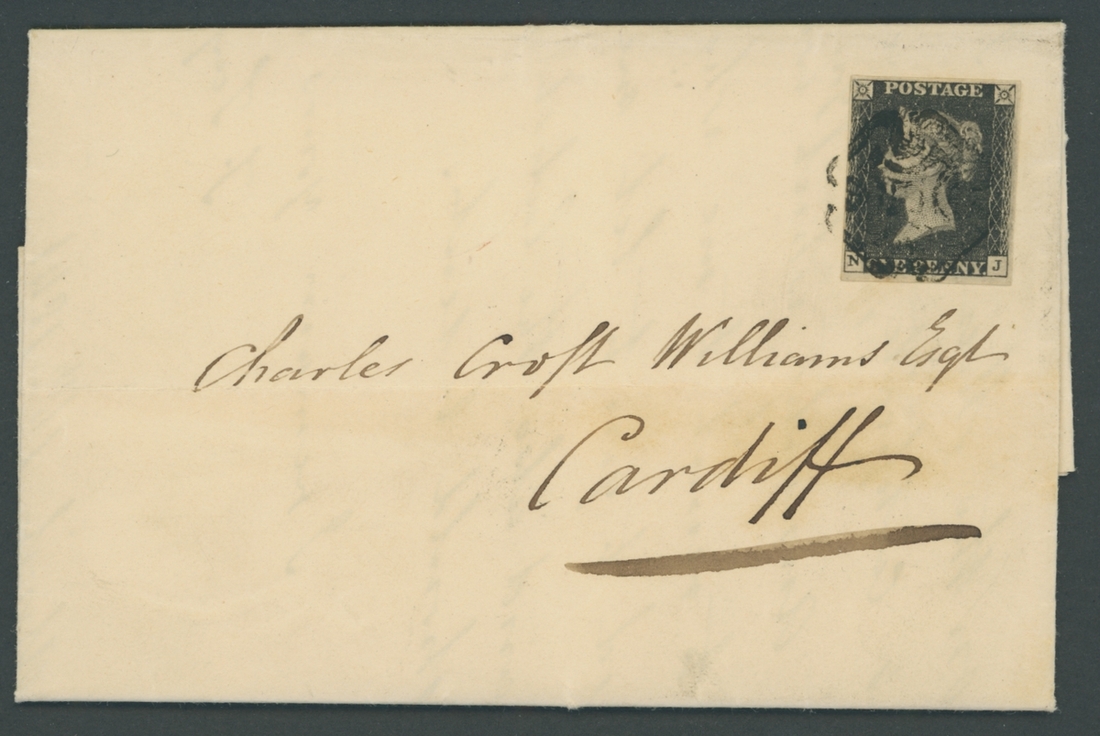 POSTAGE
N ONE PENNY. J
Charles Croft Williams Esqr
Cardiff